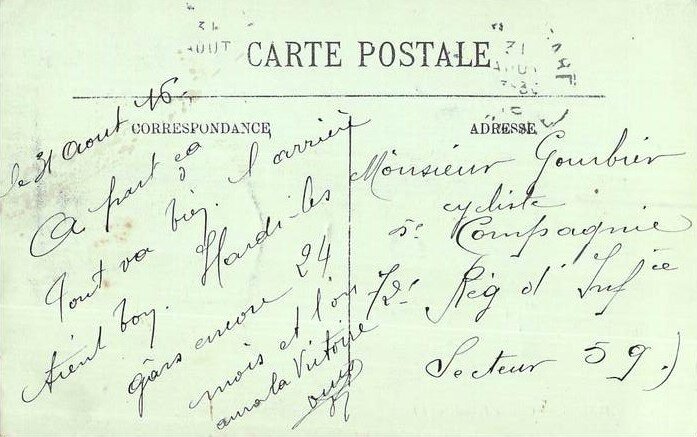 31
AOUT
CARTE POSTALE
31
AOUT
CORRESPONDANCE
ADRESSE
le 31 Aout 16.
A part ça
Tout va bien. l'arrière
tient bon. Hardi les
gârs encore 24
mois et l'on
aura la Victoire
Monsieur Gourbier
cycliste
5e Compagnie
72e Rég d'Infée
Secteur 59.)